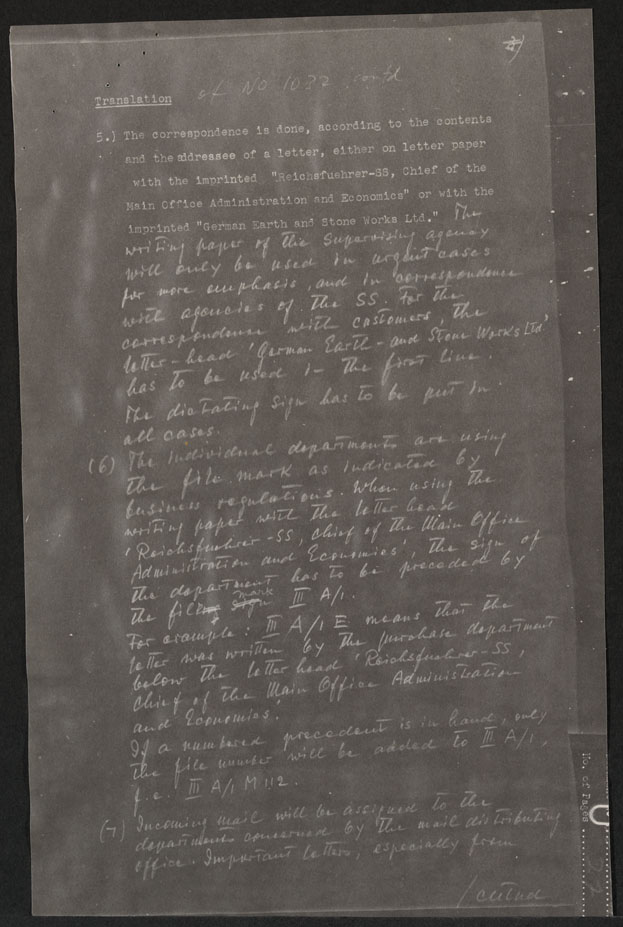 of No 1032 contd
Translation
5.) The correspondence is done, according to the contents
and the addressee of a letter, either on letter paper
with the imprinted "Reichsfuehrer-SS, Chief of the
Main Office Administration and Economics" or with the
imprinted "German Earth and Stone Works Ltd." The
writing paper of the supervising agency
will only be used in urgent cases
for more emphasis, and in correspondence
with agencies of the SS. For the
correspondence with customers, the
letter-head 'German Earth- and Stone Works Ltd'
has to be used in the first line.
The dictating sign has to be put in
all cases.
(6) The individual departments are using
the file mark as indicated by
business regulations. When using the
writing paper with the letter head
'Reichsfuehrer-SS, Chief of the Main Office
Administration and Economics', the sign of
the department has to be preceded by
the file mark III A/1.
For example: III A/1 E means that the
letter was written by the purchase department
below the letter head 'Reichsfuehrer-SS,
Chief of the Main Office Administration
and Economics'.
If a numbered precedent is in hand, only
the file number will be added to III A/1,
f.e. III A/1 M 112.
(7) Incoming mail will be assigned to the
departments concerned by the mail distributing
office. Important letters, especially from
No. of Pages